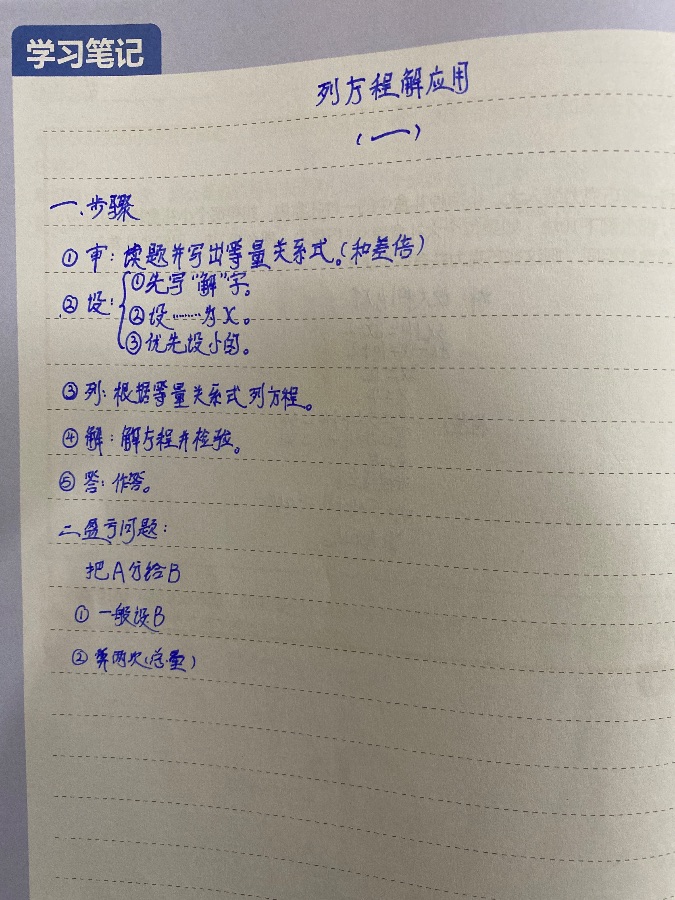 学习笔记
列方程解应用
(一)
一.步骤
①审:读题并写出等量关系式。(和差倍)
②设:①先写"解"字。
②设……为x。
③优先设小的。
③列:根据等量关系式列方程。
④解:解方程并检验。
⑤答:作答。
二盈亏问题:
把A分给B
①一般设B
②算两次(总量)